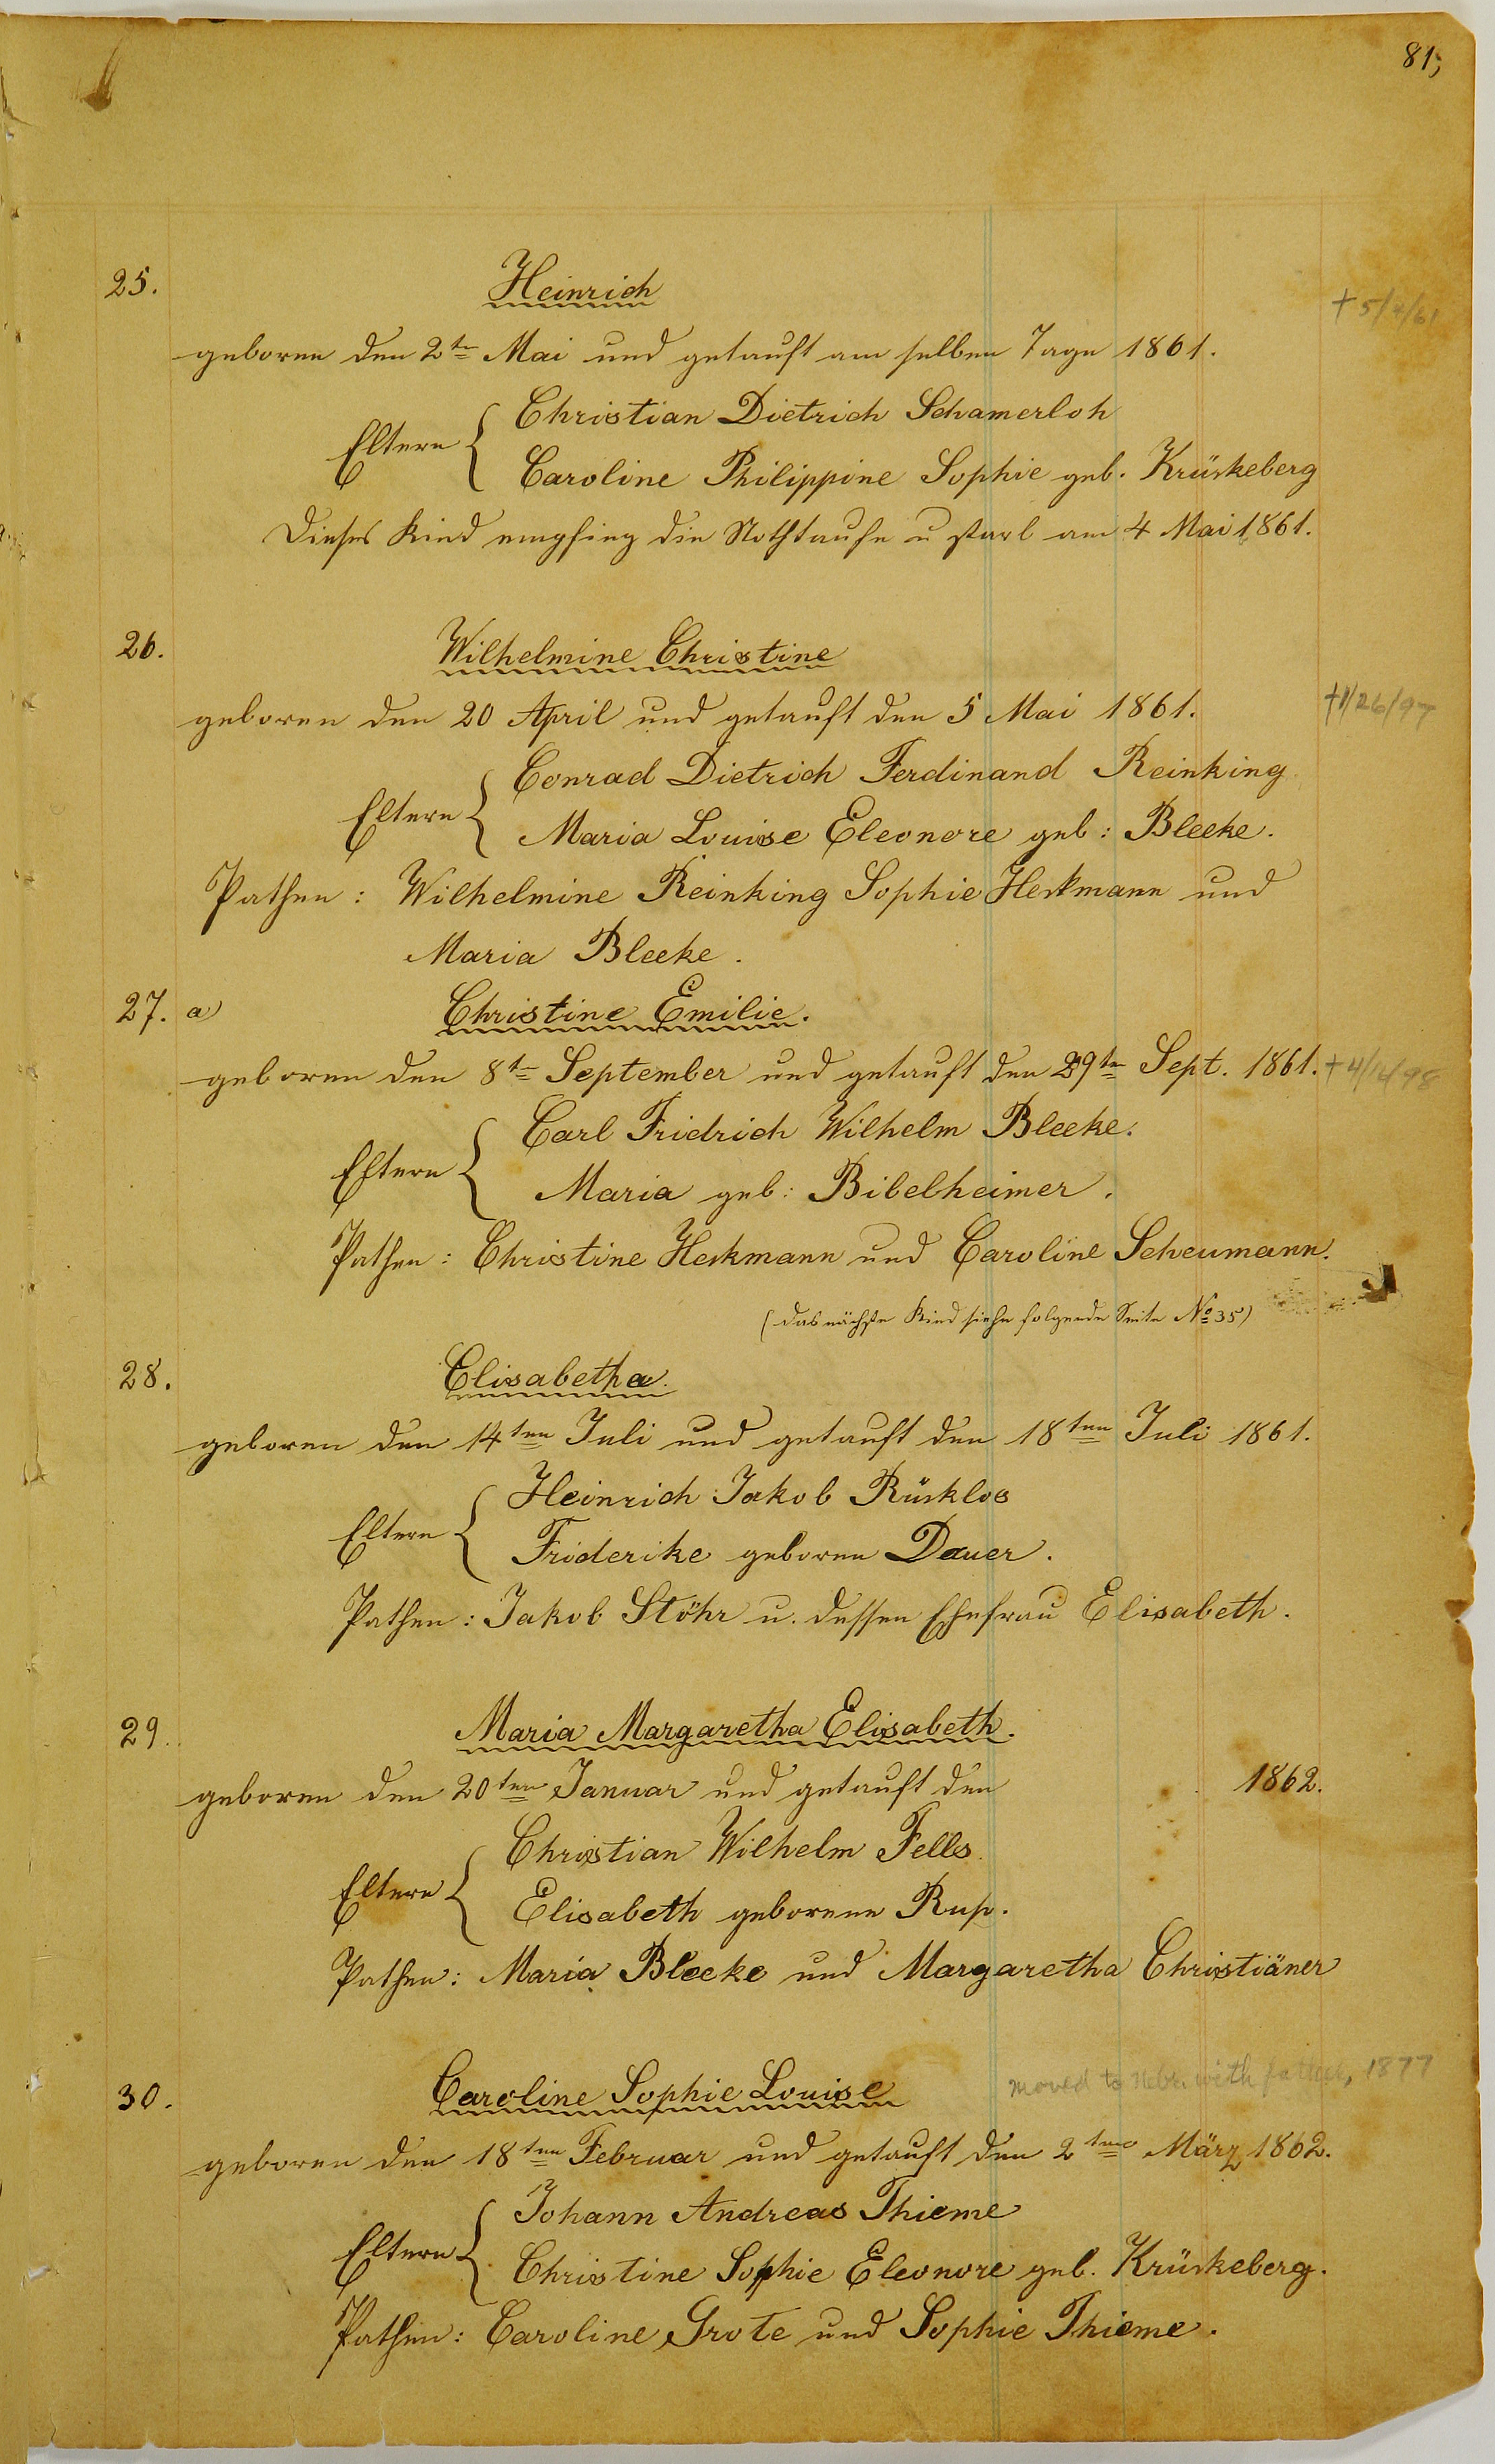 81,
25. Heinrich
+ 5/4/61
geboren den 2ten Mai und getauft am selben Tage 1861.
Eltern { Christian Dietrich Schamerloh
Caroline Philippine Sophie geb. Krückeberg
Dieses Kind empfing die Nothtaufe u starb am 4 Mai 1861.
26. Wilhelmine Christine
geboren den 20 April und getauft den 5 Mai 1861. +1/26/97
Eltern { Conrad Dietrich Ferdinand Reinking
Maria Louise Eleonore geb: Bleeke.
Pathen: Wilhelmine Reinking Sophie Heckmann und
Maria Bleeke.
27. a) Christine Emilie.
geboren den 8ten September und getauft den 29ten Sept. 1861.
Eltern { Carl Fridrich Wilhelm Bleeke.
Maria geb: Bibelheimer.
Pathen: Christine Heckmann und Caroline Scheumann.
(das nächste Kind siehe folgende Seite No 35)
28. Elisabetha.
geboren den 14ten Juli und getauft den 18ten Juli 1861.
Eltern { Heinrich Jakob Rücklos
Friderike geboren Dauer.
Pathen: Jakob Stöhr u. dessen Ehefrau Elisabeth.
29. Maria Margaretha Elisabeth.
geboren den 20ten Januar und getauft den 1862.
Eltern { Christian Wilhelm Fells.
Elisabeth geborene Rup.
Pathen: Maria Bleeke und Margaretha Christiäner
30. Caroline Sophie Louise moved to Nebr. with father, 1877
geboren den 18ten Februar und getauft den 2ten März 1862.
Eltern { Johann Andreas Thieme
Christine Sophie Eleonore geb. Krückeberg.
Pathen: Caroline Grote und Sophie Thieme.